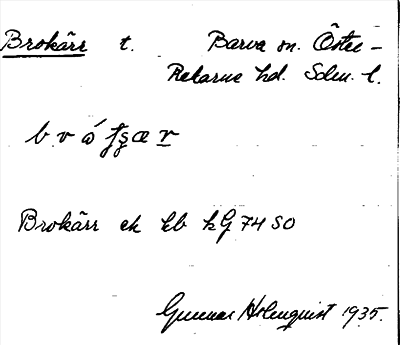 Brokärr t. Barva sn. Öster-
Rekarne hd. Sdm. l.
Brokärr ek kb kG 74 SO
Gunnar Holmquist 1935.